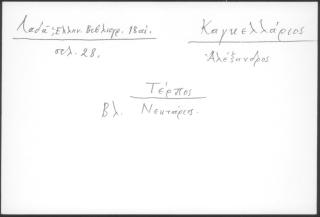 Λαδᾶ-Ἑλλην. Βιβλιογρ. 18 αἰ.
σελ. 28.
Καγκελλάριος
Ἀλέξανδρος
Τέρπος
Βλ. Νεκτάριος.